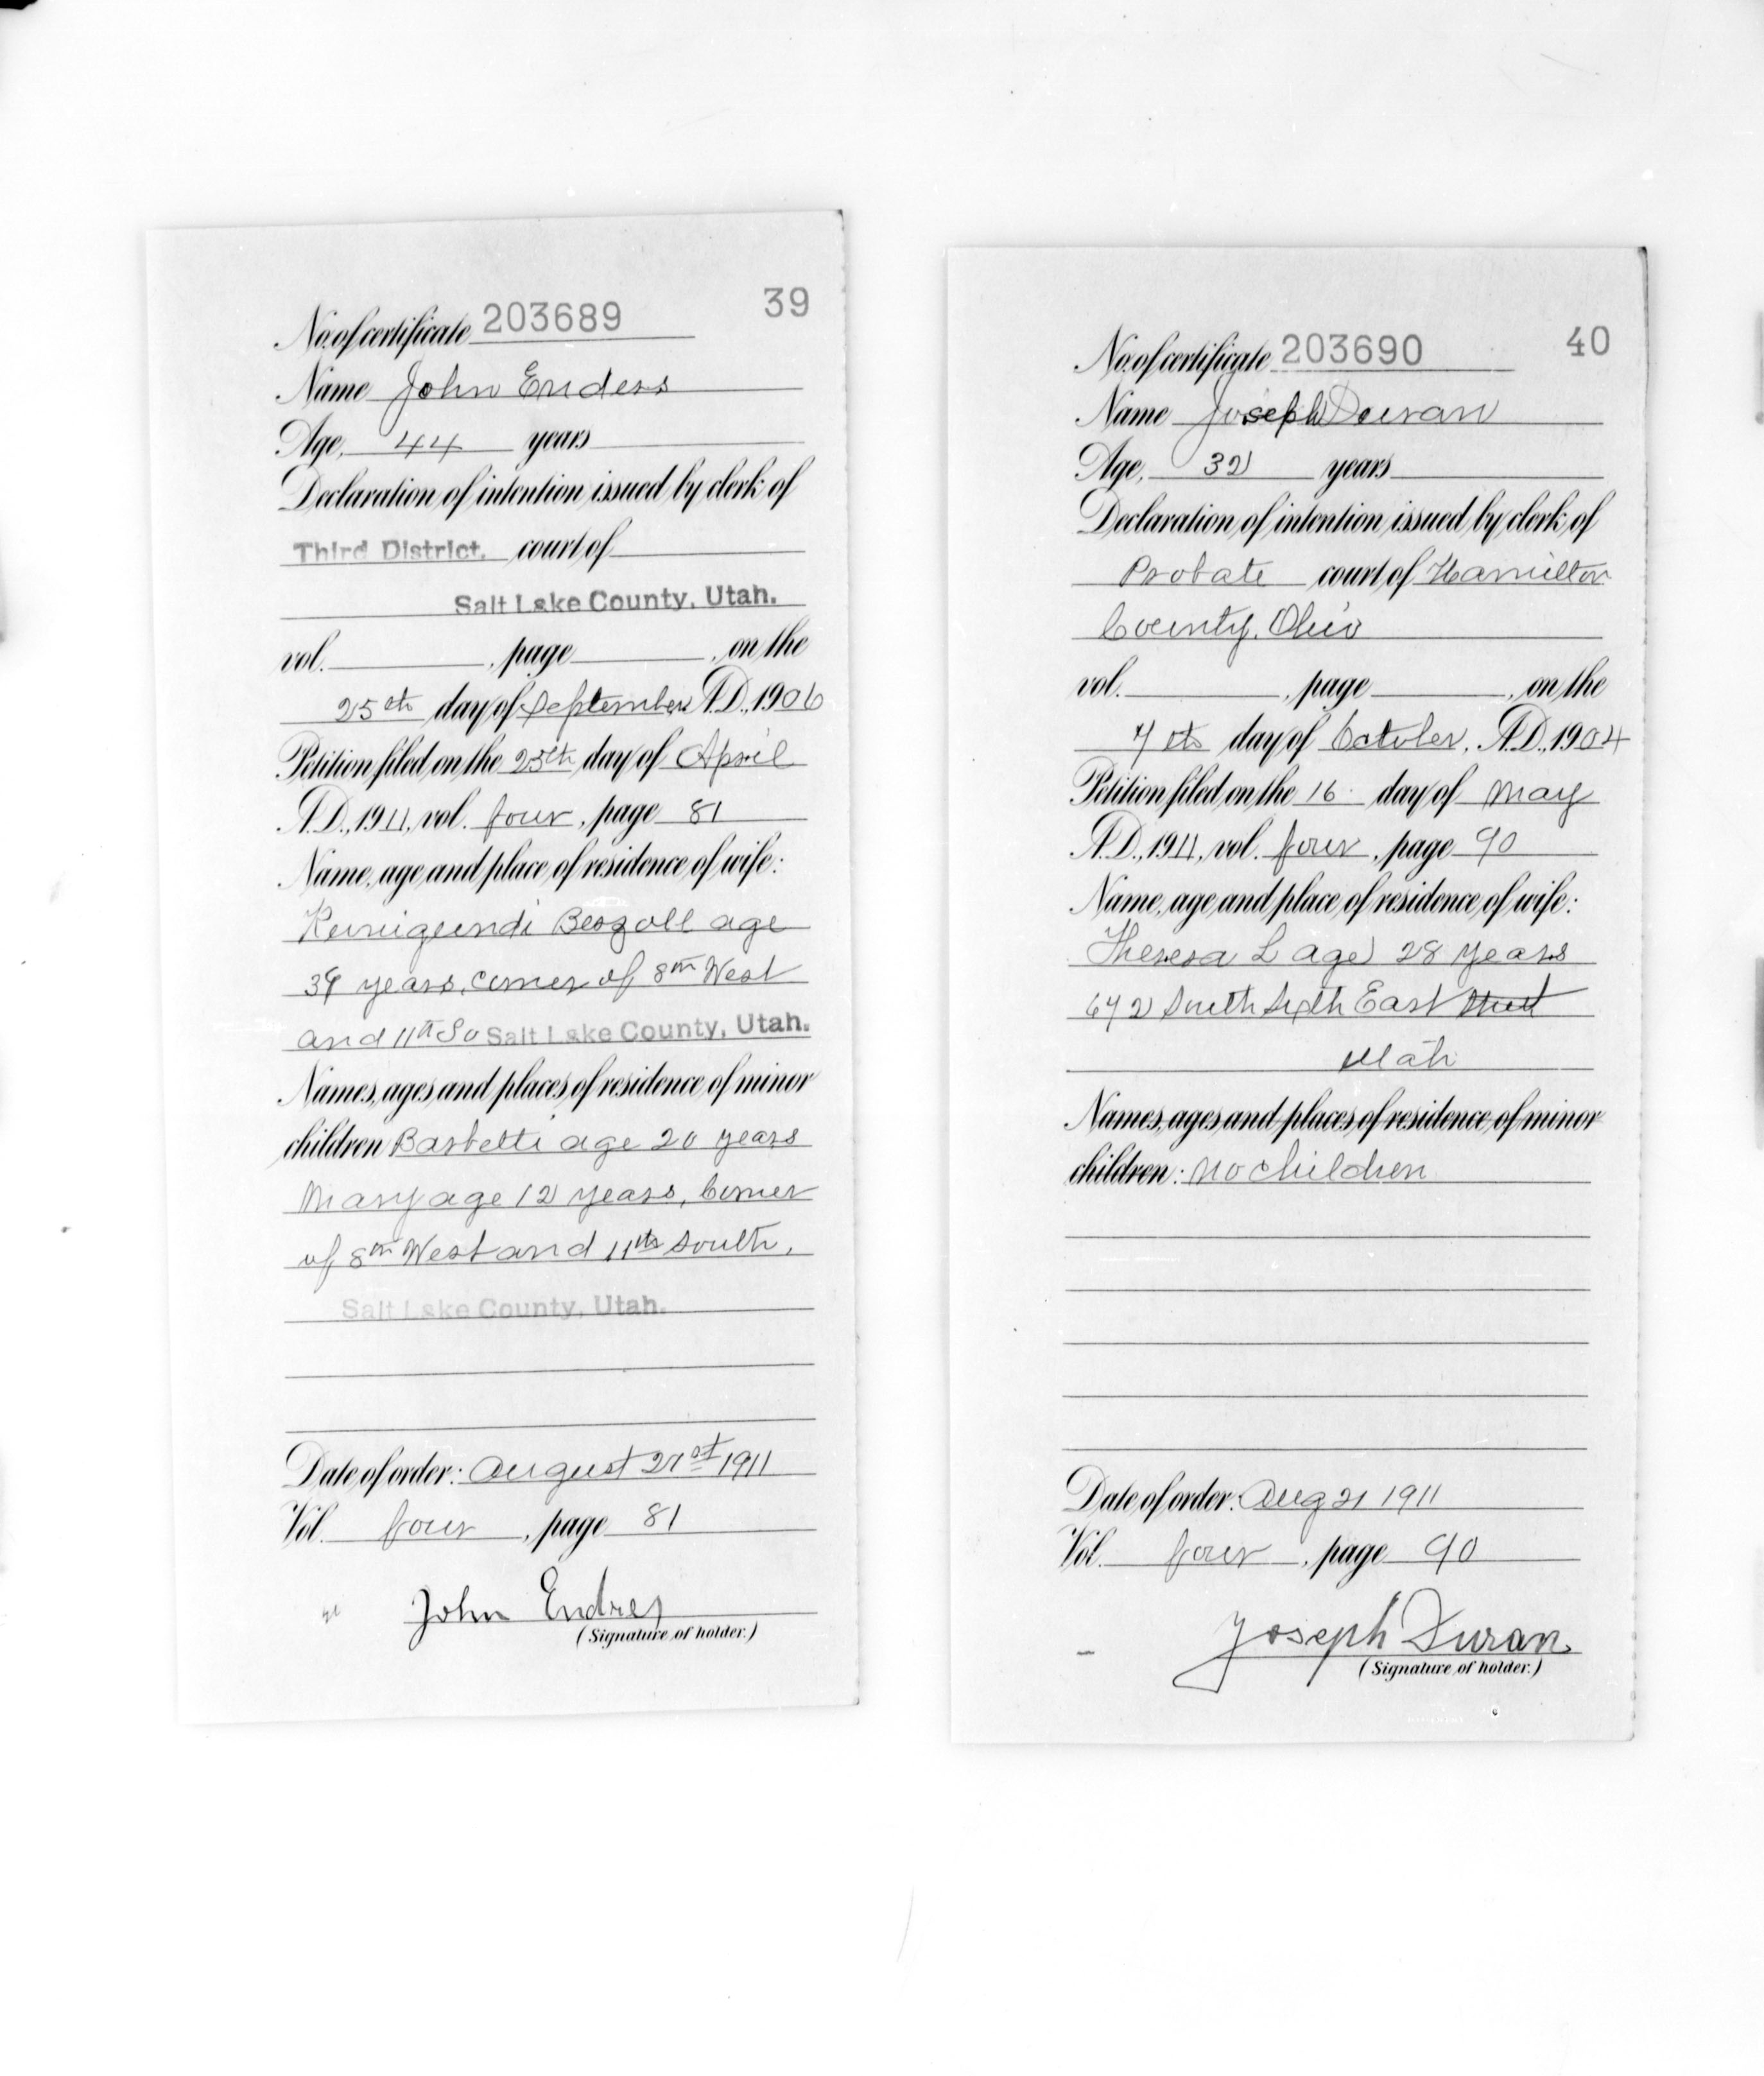 39
No. of certificate 203689
Name John Enders
Age, 44 years
Declaration of intention issued by clerk of
Third District. court of
Salt Lake County, Utah.
vol. , page , on the
25th day of September A.D., 1906
Petition filed on the 25th day of April
A.D., 1911, vol. four, page 81
Name, age and place of residence of wife:
Kunigundi Bergoll age
39 years, corner of 8th West
and 11th So Salt Lake County, Utah.
Names, ages and places of residence of minor
children Barbetti age 20 years
Mary age 12 years, Corner
of 8th West and 11th South,
Salt Lake County, Utah.
Date of order: August 21st 1911
Vol. four, page 81
John Endres
(Signature of holder.)
40
No. of certificate 203690
Name Joseph Duran
Age, 32 years
Declaration of intention issued by clerk of
Probate court of Hamilton
County, Ohio
vol. , page , on the
7th day of October, A.D., 1904
Petition filed on the 16 day of May
A.D., 1911, vol. four, page 90
Name, age and place of residence of wife:
Theresa L age 28 years
672 South Sixth East Street
Utah
Names, ages and places of residence of minor
children: No children
Date of order: Aug 21 1911
Vol. four, page 90
Joseph Duran
(Signature of holder.)